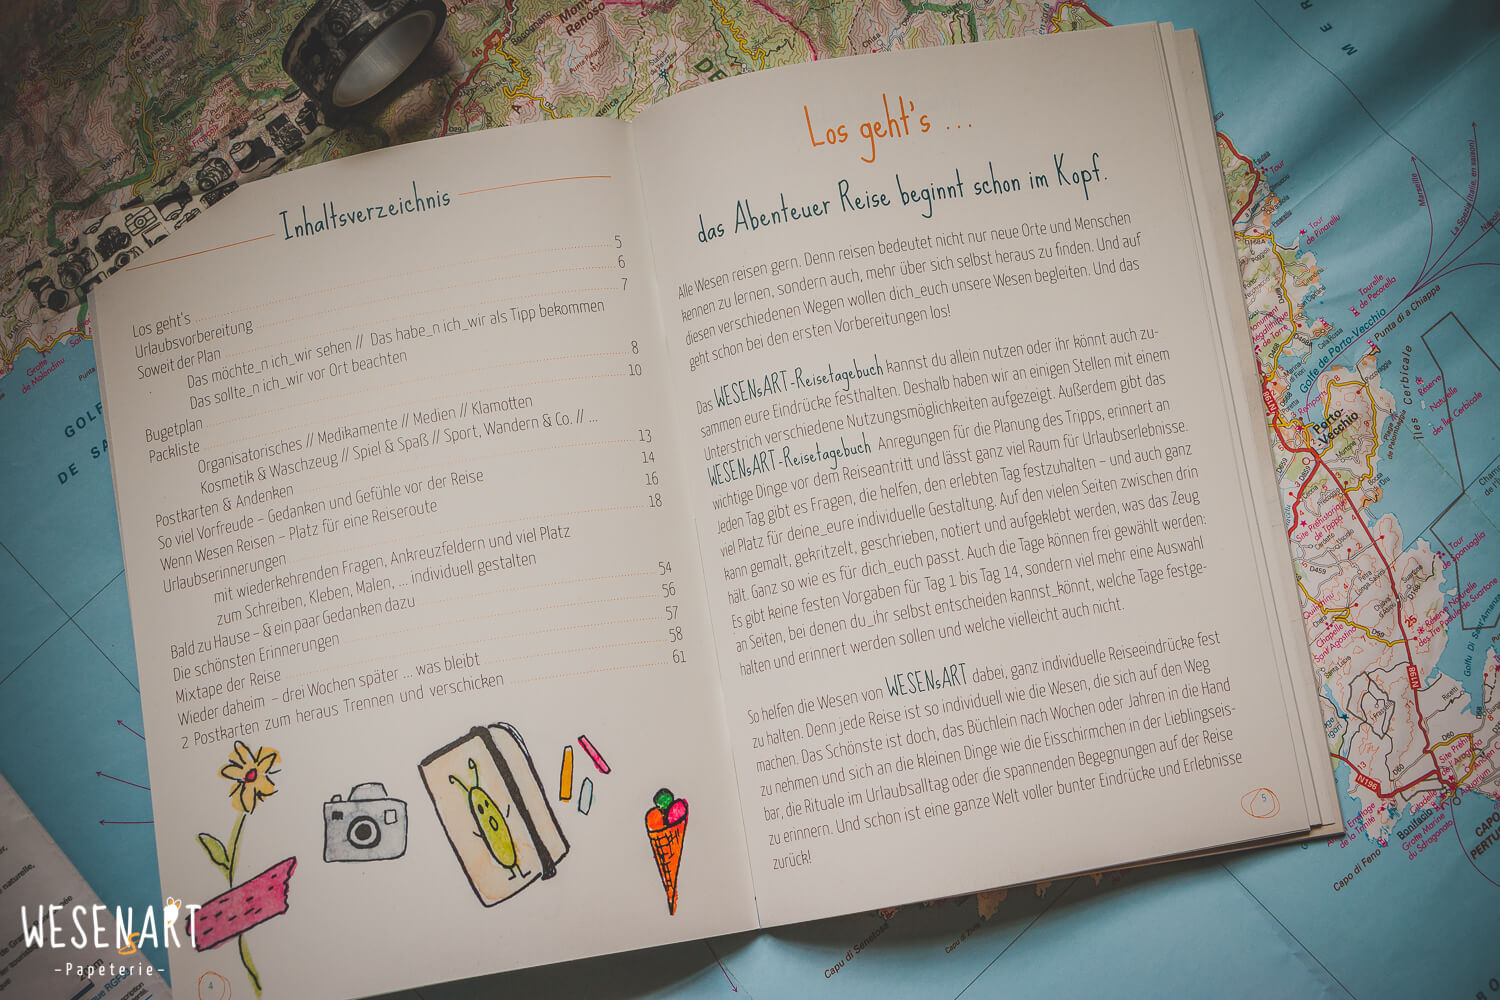 Inhaltsverzeichnis
Los geht's 5
Urlaubsvorbereitung 6
Soweit der Plan 7
Das möchte_n ich_wir sehen // Das habe_n ich_wir als Tipp bekommen
Das sollte_n ich_wir vor Ort beachten
Bugetplan 8
Packliste 10
Organisatorisches // Medikamente // Medien // Klamotten
Kosmetik & Waschzeug // Spiel & Spaß // Sport, Wandern & Co. // ...
Postkarten & Andenken 13
So viel Vorfreude – Gedanken und Gefühle vor der Reise 14
Wenn Wesen Reisen – Platz für eine Reiseroute 16
Urlaubserinnerungen 18
mit wiederkehrenden Fragen, Ankreuzfeldern und viel Platz
zum Schreiben, Kleben, Malen, ... individuell gestalten
Bald zu Hause – & ein paar Gedanken dazu 54
Die schönsten Erinnerungen 56
Mixtape der Reise 57
Wieder daheim – drei Wochen später ... was bleibt 58
2 Postkarten zum heraus Trennen und verschicken 61
4
Los geht's ...
das Abenteuer Reise beginnt schon im Kopf.
Alle Wesen reisen gern. Denn reisen bedeutet nicht nur neue Orte und Menschen
kennen zu lernen, sondern auch, mehr über sich selbst heraus zu finden. Und auf
diesen verschiedenen Wegen wollen dich_euch unsere Wesen begleiten. Und das
geht schon bei den ersten Vorbereitungen los!
Das WESENsART-Reisetagebuch kannst du allein nutzen oder ihr könnt auch zu-
sammen eure Eindrücke festhalten. Deshalb haben wir an einigen Stellen mit einem
Unterstrich verschiedene Nutzungsmöglichkeiten aufgezeigt. Außerdem gibt das
WESENsART-Reisetagebuch Anregungen für die Planung des Tripps, erinnert an
wichtige Dinge vor dem Reiseantritt und lässt ganz viel Raum für Urlaubserlebnisse.
Jeden Tag gibt es Fragen, die helfen, den erlebten Tag festzuhalten – und auch ganz
viel Platz für deine_eure individuelle Gestaltung. Auf den vielen Seiten zwischen drin
kann gemalt, gekritzelt, geschrieben, notiert und aufgeklebt werden, was das Zeug
hält. Ganz so wie es für dich_euch passt. Auch die Tage können frei gewählt werden:
Es gibt keine festen Vorgaben für Tag 1 bis Tag 14, sondern viel mehr eine Auswahl
an Seiten, bei denen du_ihr selbst entscheiden kannst_könnt, welche Tage festge-
halten und erinnert werden sollen und welche vielleicht auch nicht.
So helfen die Wesen von WESENsART dabei, ganz individuelle Reiseeindrücke fest
zu halten. Denn jede Reise ist so individuell wie die Wesen, die sich auf den Weg
machen. Das Schönste ist doch, das Büchlein nach Wochen oder Jahren in die Hand
zu nehmen und sich an die kleinen Dinge wie die Eisschirmchen in der Lieblingseis-
bar, die Rituale im Urlaubsalltag oder die spannenden Begegnungen auf der Reise
zu erinnern. Und schon ist eine ganze Welt voller bunter Eindrücke und Erlebnisse
zurück!
5
Golfe de Porto-Vecchio
Punta di a Chiappa
Porto-
-Vecchio
Îles Cerbicale
Marseille
Tour
de Pinarellu
Tourelle
de Pecorella
N198
N196
Bonifacio
Capo di Feno
WESENsART
-Papeterie-